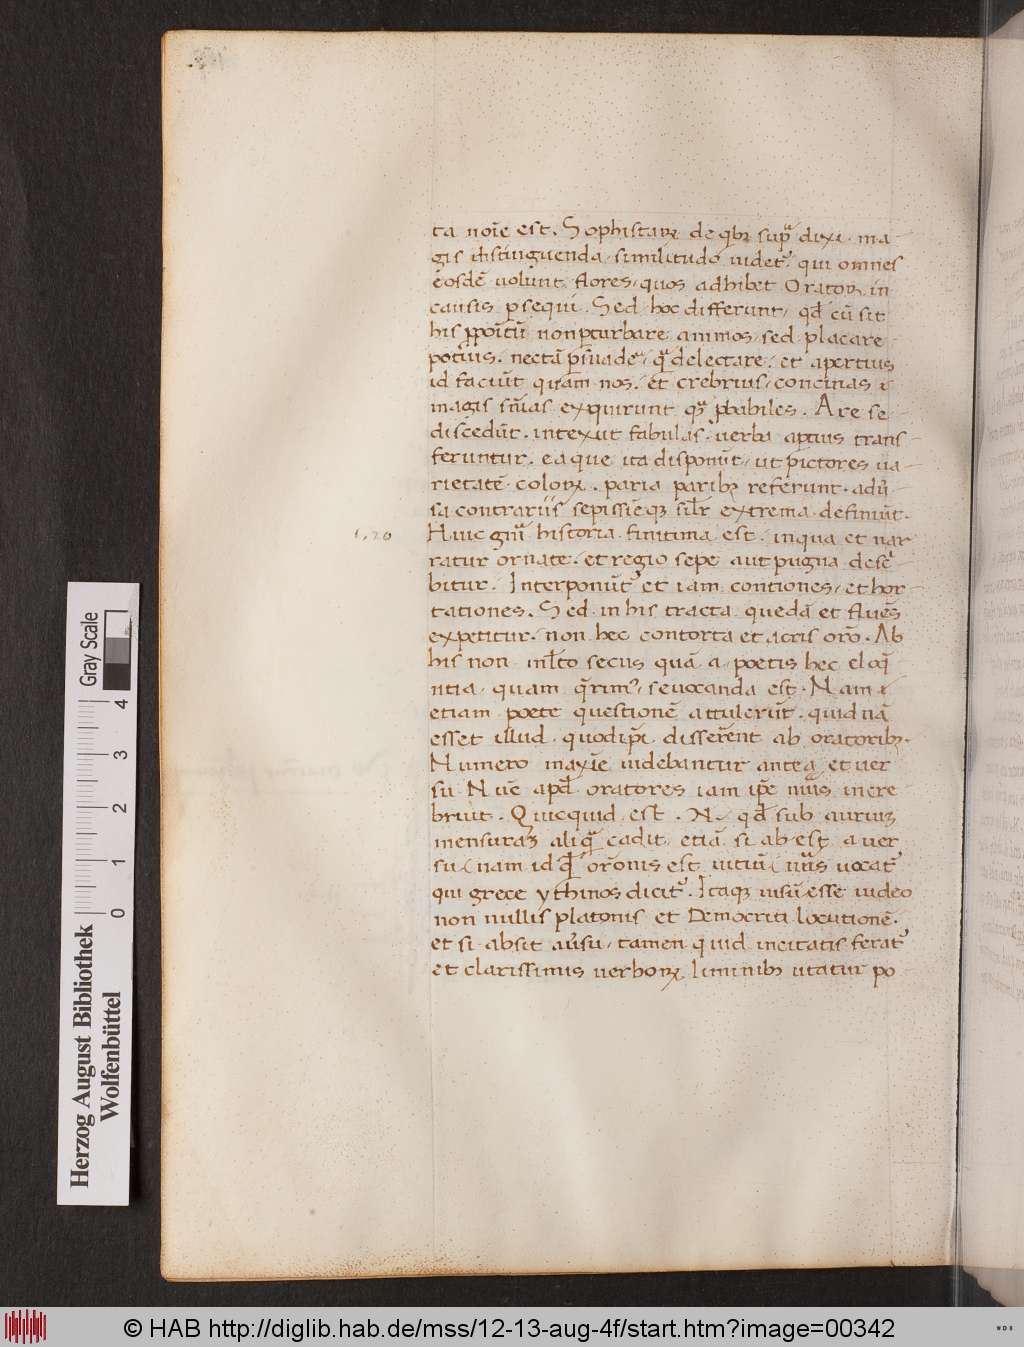 ta noīe est. Sophistarꝝ de qbꝫ supᵃ dixi. ma
gis distinguenda. similitudo uidet᷑. qui omnes
eosdē uolunt flores, quos adhibet Oratorꝝ in
causis ꝑsequi. Sed hoc differunt, qđ cū sit
his ꝓpoītū non ꝑturbare animos, sed placare
potius. nec tā ꝑsuade᷑, qᵃ delectare. et apertius
id faciūt quam nos. et crebrius, concinas
magis sn̄ias exquirunt qᵃ ꝓbabiles. A re se
discedūt. intexūt fabulas. uerba aptius trans
feruntur. ea que ita disponūt, ut pictores ua
rietatē colorꝝ. paria paribꝫ referunt. adū
sa contrariis sepissieqꝫ silr̄ extrema definiūt.
1,20
Huic gn̄i historia finitima est. in qua et nar
ratur ornate. et regio sepe aut pugna desc͛
bitur. Interponūt᷑ et iam contiones, et hor
tationes. Sed in his tracta quedā et fluēs
expetitur. non hec contorta et acris or̄o. Ab
his non ml̄to secus quā a poetis hec eloq̄
ntia. quam q̄rim᷒, seuocanda est. Nam
etiam poete questionē attulerūt. quid nā
esset illud. quo dip̄i differrent ab oratoribꝫ.
Numero maxīe uidebantur antea et uer
su. Nūc apđ oratores iam ip̄e nūs incre
bruit. Quicquid est. N. qđ sub auriuꝫ
mensuraꝫ aliqᵃ cadit, etiā si abest a uer
su, nam id qđ or̄onis est uitiū, nūs uocat᷑
qui grece ythinos dicit᷑. Itaqꝫ uisū esse uideo
non nullis platonis et Democriti locutionē.
et si absit aūsu, tamen quid incitatis ferat᷑
et clarissimis uerborꝝ liminibꝫ utatur po
Herzog August Bibliothek
Wolfenbüttel
Gray Scale
0 1 2 3 4
© HAB http://diglib.hab.de/mss/12-13-aug-4f/start.htm?image=00342